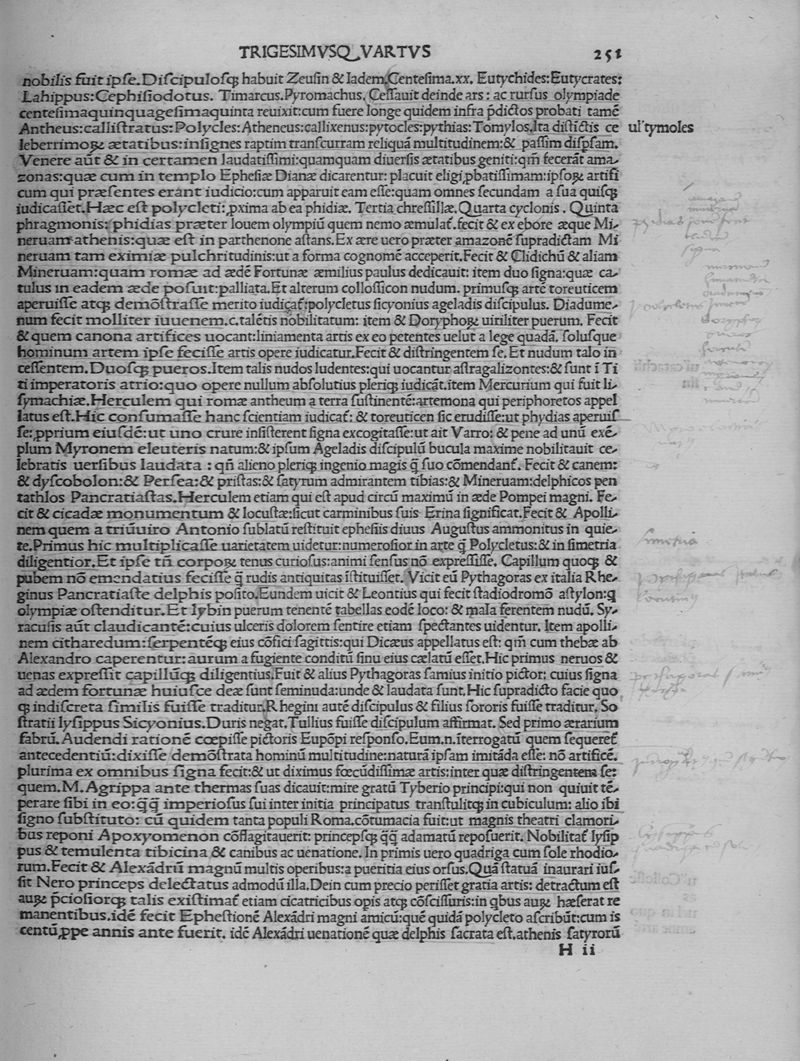 TRIGESIMVSQVARTVS 251
nobilis fuit ipſe.Diſcipuloſqꝫ habuit Zeuſin & Iadem.Centeſima.xx. Eutychides:Eutycrates:
Lahippus:Cephiſiodotus. Timarcus.Pyromachus. Ceſſauit deinde ars : ac rurſus olympiade
centeſimaquinquageſimaquinta reuixit:cum fuere longe quidem infra p̄dictos probati tamē
Antheus:calliſtratus:Polycles:Atheneus:callixenus:pytocles:pythias:Tomylos.Ita diſtīctis ce
ul'tymoles
leberrimoꝝ ætatibus:inſignes raptim tranſcurram reliquā multitudinem:& paſſim diſpſam.
Venere aūt & in certamen laudatiſſimi:quamquam diuerſis ætatibus geniti:qm̄ fecerāt ama-
zonas:quæ cum in templo Epheſiæ Dianæ dicarentur: placuit eligi ꝓbatiſſimam:ipſoꝝ artifi
cum qui præſentes erant iudicio:cum apparuit eam eſſe:quam omnes ſecundam a ſua quiſqꝫ
iudicaſſet.Hæc eſt polycleti:ꝓxima ab ea phidiæ. Tertia chreſſillæ.Quarta cyclonis . Quinta
phragmonis: phidias præter Iouem olympiū quem nemo æmulat̄.fecit & ex ebore æque Mi-
neruam athenis:quæ eſt in parthenone aſtans.Ex ære uero præter amazonē ſupradictam Mi
neruam tam eximiæ pulchritudinis:ut a forma cognomē acceperit.Fecit & Clidichū & aliam
Mineruam:quam romæ ad ædē Fortunæ æmilius paulus dedicauit: item duo ſigna:quæ ca-
tulus in eadem æde poſuit:palliata.Et alterum coloſſicon nudum. primuſqꝫ artē toreuticem
aperuiſſe atqꝫ demōſtraſſe merito iudicat̄:polycletus ſicyonius ageladis diſcipulus. Diadume-
num fecit molliter iuuenem.c.talētis nobilitatum: item & Doryphoꝝ uiriliter puerum. Fecit
& quem canona artifices uocant:liniamenta artis ex eo petentes uelut a lege quadā. ſoluſque
hominum artem ipſe feciſſe artis opere iudicatur.Fecit & diſtringentem ſe. Et nudum talo in
ceſſentem.Duoſqꝫ pueros.Item talis nudos ludentes:qui uocantur aſtragalizontes:& ſunt ī Ti
ti imperatoris atrio:quo opere nullum abſolutius pleriqꝫ iudicāt.item Mercurium qui fuit li-
ſymachiæ.Herculem qui romæ antheum a terra ſuſtinentē:artemona qui periphoretos appel
latus eſt.Hic conſumaſſe hanc ſcientiam iudicat̄: & toreuticen ſic erudiſſe:ut phydias aperuiſ
ſe:ꝓprium eiuſdē:ut uno crure inſiſterent ſigna excogitaſſe:ut ait Varro: & pene ad unū exē-
plum Myronem eleuteris natum:& ipſum Ageladis diſcipulū bucula maxime nobilitauit ce-
lebratis uerſibus laudata : qn̄ alieno pleriqꝫ ingenio magis q̄ ſuo cōmendant̄. Fecit & canem:
& dyſcobolon:& Perſea:& priſtas:& ſatyrum admirantem tibias:& Mineruam:delphicos pen
tathlos Pancratiaſtas.Herculem etiam qui eſt apud circū maximū in æde Pompei magni. Fe-
cit & cicadæ monumentum & locuſtæ:ſicut carminibus ſuis Erina ſignificat.Fecit & Apolli-
nem quem a triūuiro Antonio ſublatū reſtituit epheſiis diuus Auguſtus ammonitus in quie-
te.Primus hic multiplicaſſe uarietatem uidetur:numeroſior in arte q̄ Polycletus:& in ſimetria
diligentior.Et ipſe tn̄ corpoꝝ tenus curioſus:animi ſenſus nō expreſſiſſe. Capillum quoqꝫ &
pubem nō emendatius feciſſe q̄ rudis antiquitas īſtituiſſet. Vicit eū Pythagoras ex italia Rhe-
ginus Pancratiaſte delphis poſito.Eundem uicit & Leontius qui fecit ſtadiodromō aſtylon:q
olympiæ oſtenditur.Et lybin puerum tenentē tabellas eodē loco: & mala ferentem nudū. Sy-
racuſis aūt claudicantē:cuius ulceris dolorem ſentire etiam ſpectantes uidentur. Item apolli-
nem citharedum:ſerpentēqꝫ eius cōfici ſagittis:qui Dicæus appellatus eſt: qm̄ cum thebæ ab
Alexandro caperentur:aurum a fugiente conditū ſinu eius cælatū eſſet.Hic primus neruos &
uenas expreſſit capillūqꝫ diligentius.Fuit & alius Pythagoras ſamius initio pictor: cuius ſigna
ad ædem fortunæ huiuſce deæ ſunt ſeminuda:unde & laudata ſunt.Hic ſupradicto facie quo
qꝫ indiſcreta ſimilis fuiſſe traditur.Rhegini autē diſcipulus & filius ſororis fuiſſe traditur. So
ſtratii lyſippus Sicyonius.Duris negat.Tullius fuiſſe diſcipulum affirmat. Sed primo ærarium
fabrū. Audendi rationē cœpiſſe pictoris Eupōpi reſponſo.Eum.n.īterrogatū quem ſequeret̄
antecedentiū:dixiſſe demōſtrata hominū multitudine:naturā ipſam imitāda eſſe: nō artificē.
plurima ex omnibus ſigna fecit:& ut diximus fœcūdiſſimæ artis:inter quæ diſtringentem ſe:
quem.M.Agrippa ante thermas ſuas dicauit:mire gratū Tyberio principi:qui non quiuit tē-
perare ſibi in eo:q̄q̄ imperioſus ſui inter initia principatus tranſtulitqꝫ in cubiculum: alio ibi
ſigno ſubſtituto: cū quidem tanta populi Roma.cōtumacia fuit:ut magnis theatri clamori-
bus reponi Apoxyomenon cōflagitauerit: princepſqꝫ q̄q̄ adamatū repoſuerit. Nobilitat̄ lyſip
pus & temulenta tibicina & canibus ac uenatione. In primis uero quadriga cum ſole rhodio-
rum.Fecit & Alexādrū magnū multis operibus:a pueritia eius orſus.Quā ſtatuā inaurari iuſ-
ſit Nero princeps delectatus admodū illa.Dein cum precio periſſet gratia artis: detractum eſt
auꝝ p̄cioſiorqꝫ talis exiſtimat̄ etiam cicatricibus opis atqꝫ cōſciſſuris:in qbus auꝝ hæſerat re
manentibus.idē fecit Epheſtionē Alexādri magni amicū:quē quidā polycleto aſcribūt:cum is
centū ꝓpe annis ante fuerit. idē Alexādri uenationē quæ delphis ſacrata eſt.athenis ſatyrorū
H ii